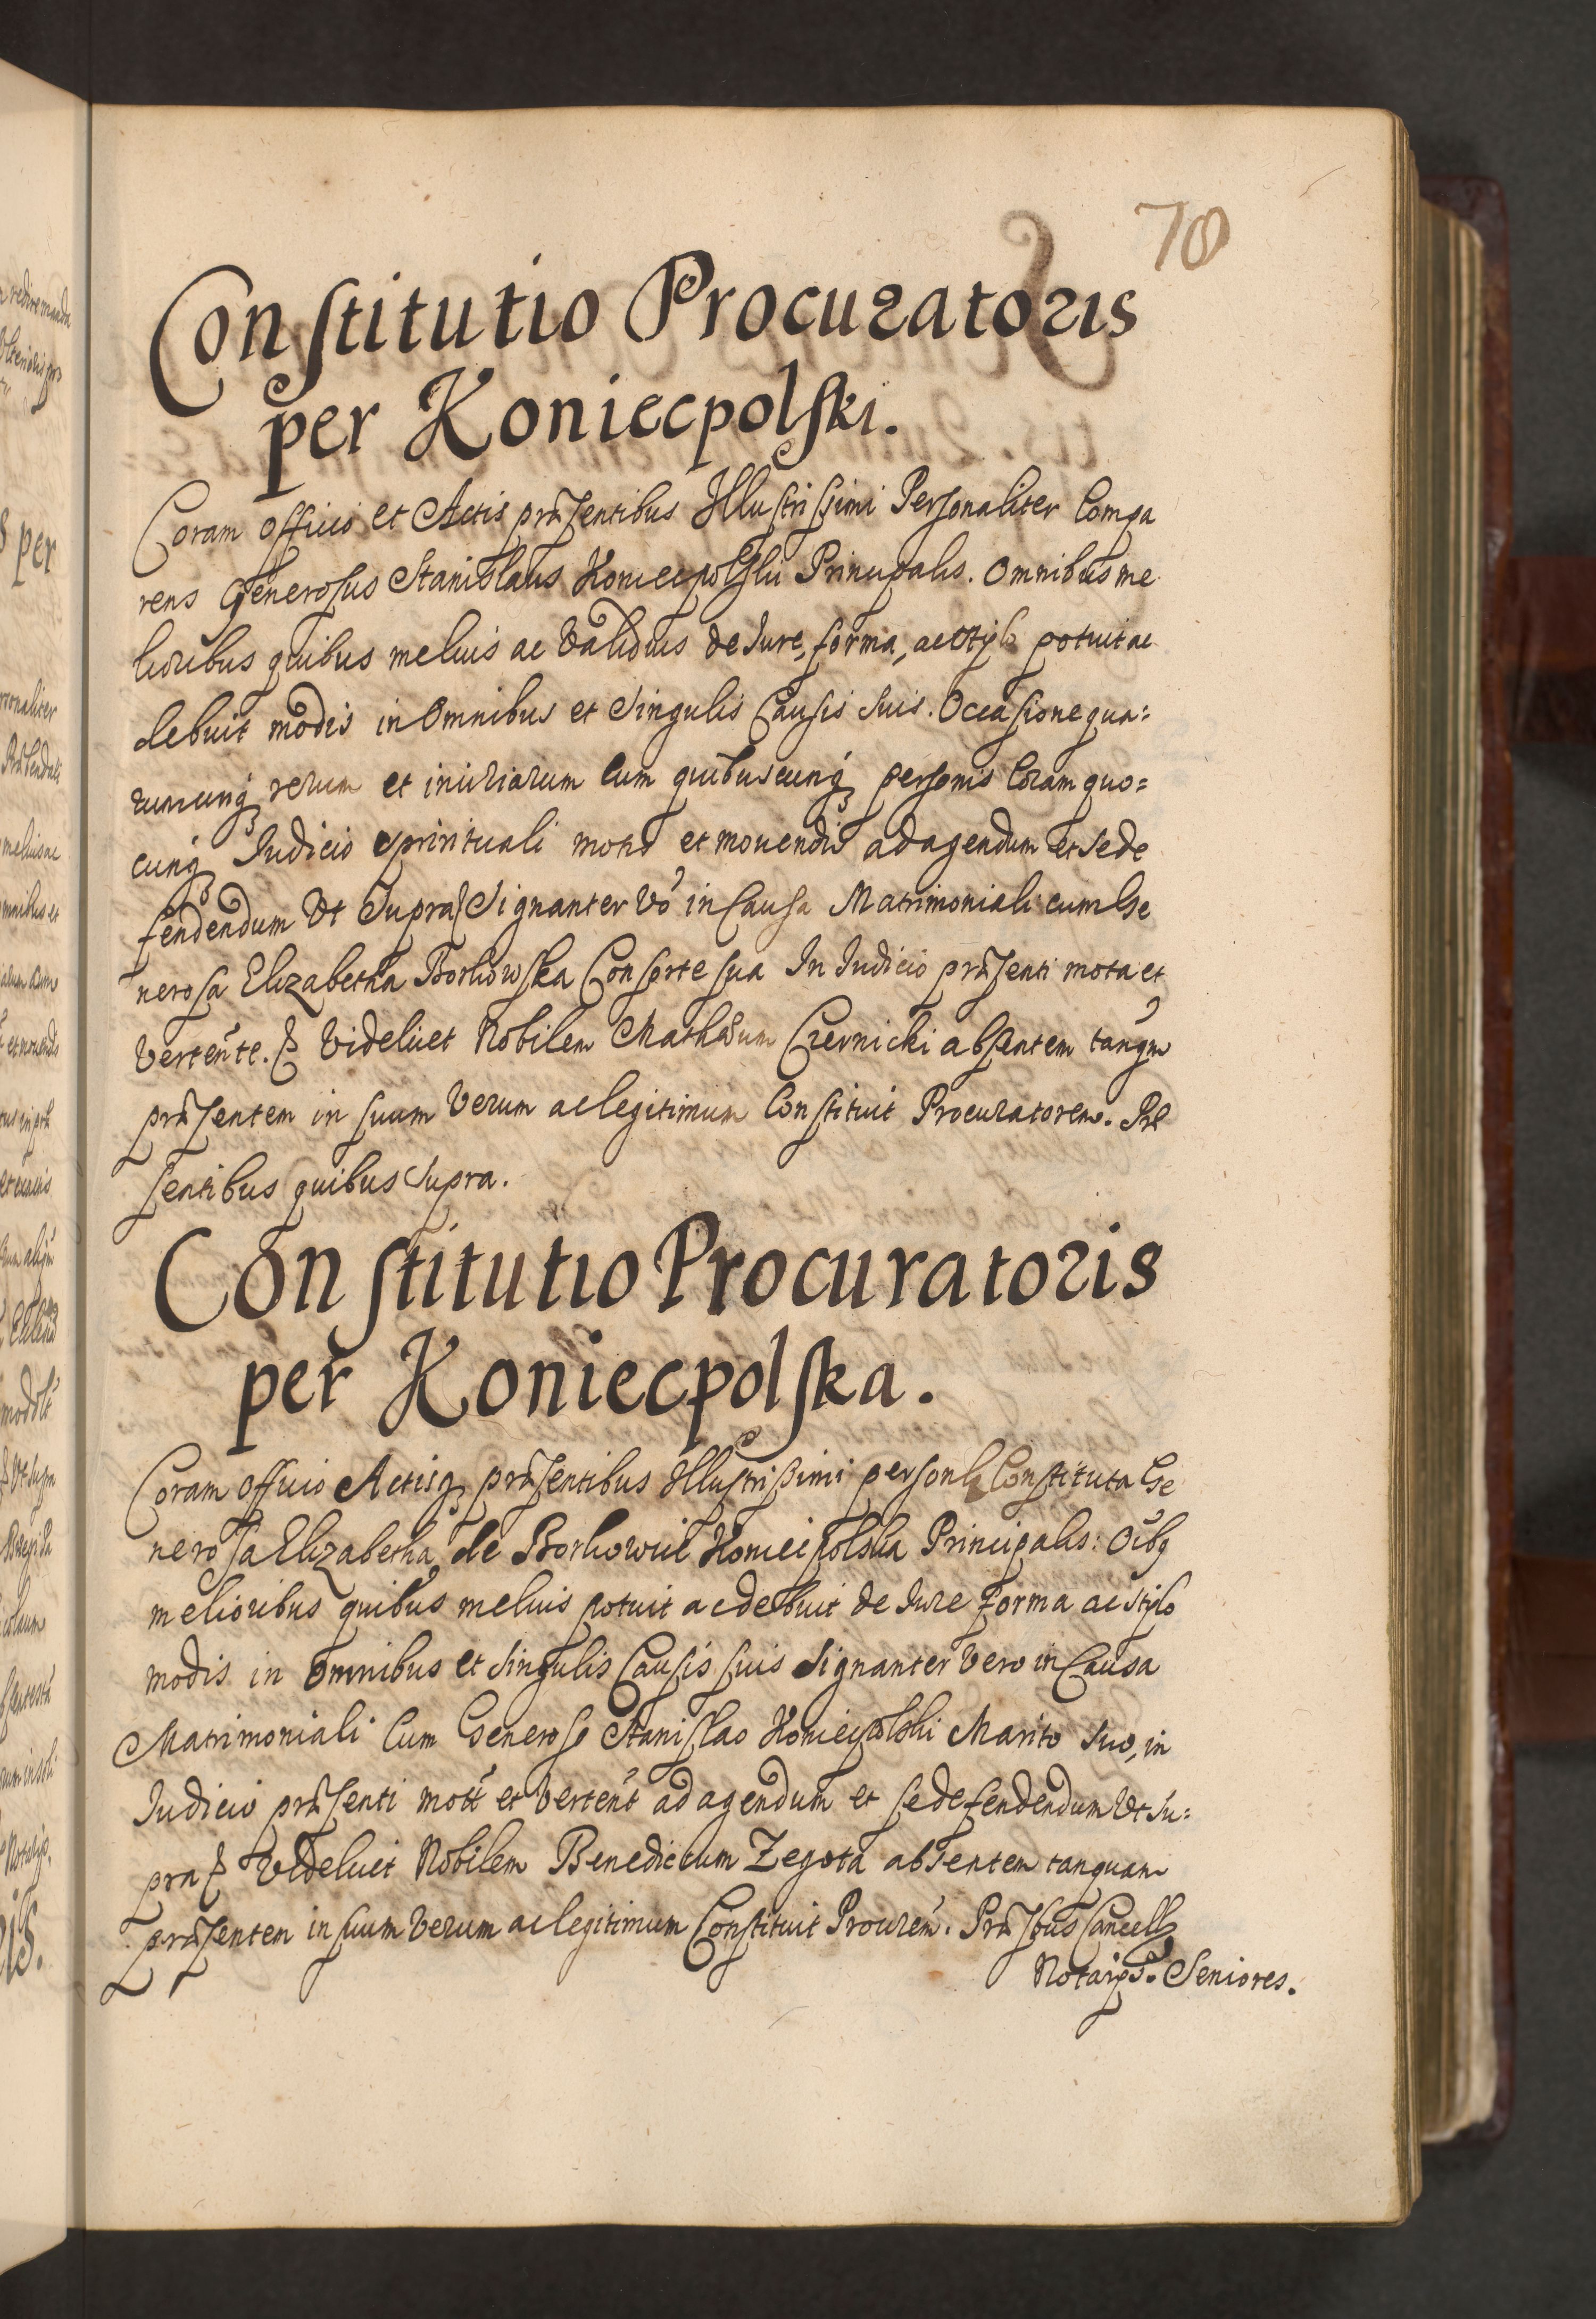 70
Constitutio Procuratoris
per Koniecpolski.
Coram Officio et Actis præsentibus Illustrissimi Personaliter Compa
rens Generosus Stanislaus Koniecpolski Principalis. Omnibus me
lioribus quibus melius ac Validius de Iure, forma, ac stylo potuit ac
debuit modis in Omnibus et Singulis Causis Suis. Occasione qua=
rumcunq rerum et iniuriarum Cum quibuscunq personis Coram quo=
cunq Iudicio spirituali motis et mouendis ad agendum et se de
fendendum Vt Supra Signanter Vo in Causa Matrimoniali cum Ge
nerosa Elizabetha Borkowska Consorte sua In Iudicio præsenti mota et
Vertente. Videlicet Nobilem Czernicki absentem tanqm
præsentem in suum Verum ac legitimum Constituit Procuratorem. Præ
sentibus quibus Supra.
Constitutio Procuratoris
per Koniecpolska.
Coram Officio Actisq præsentibus Illustrissimi Constituta Ge
nerosa Elizabetha de Koniecpolska Principalis: Oibq
melioribus quibus melius potuit ac debuit de Iure forma ac stylo
modis in Omnibus et Singulis Causis suis Signanter Vero in Causa
Matrimoniali Cum Generoso Stanislao Koniecpolski Marito Suo, in
Iudicio præsenti mott et Vertent ad agendum et se defendendum Vt Su=
pra Videlicet Nobilem Benedictum Zegota absentem tanquam
præsentem in suum Verum ac legitimum Constituit Procurem. Præsbus Cancell
Seniores.